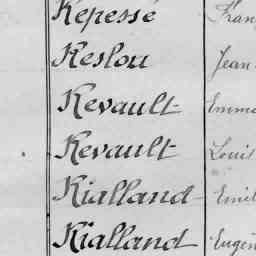 Repessé Fran
Reslou Jean
Revault Emma
Revault Louis
Rialland Emil
Rialland Eugèn